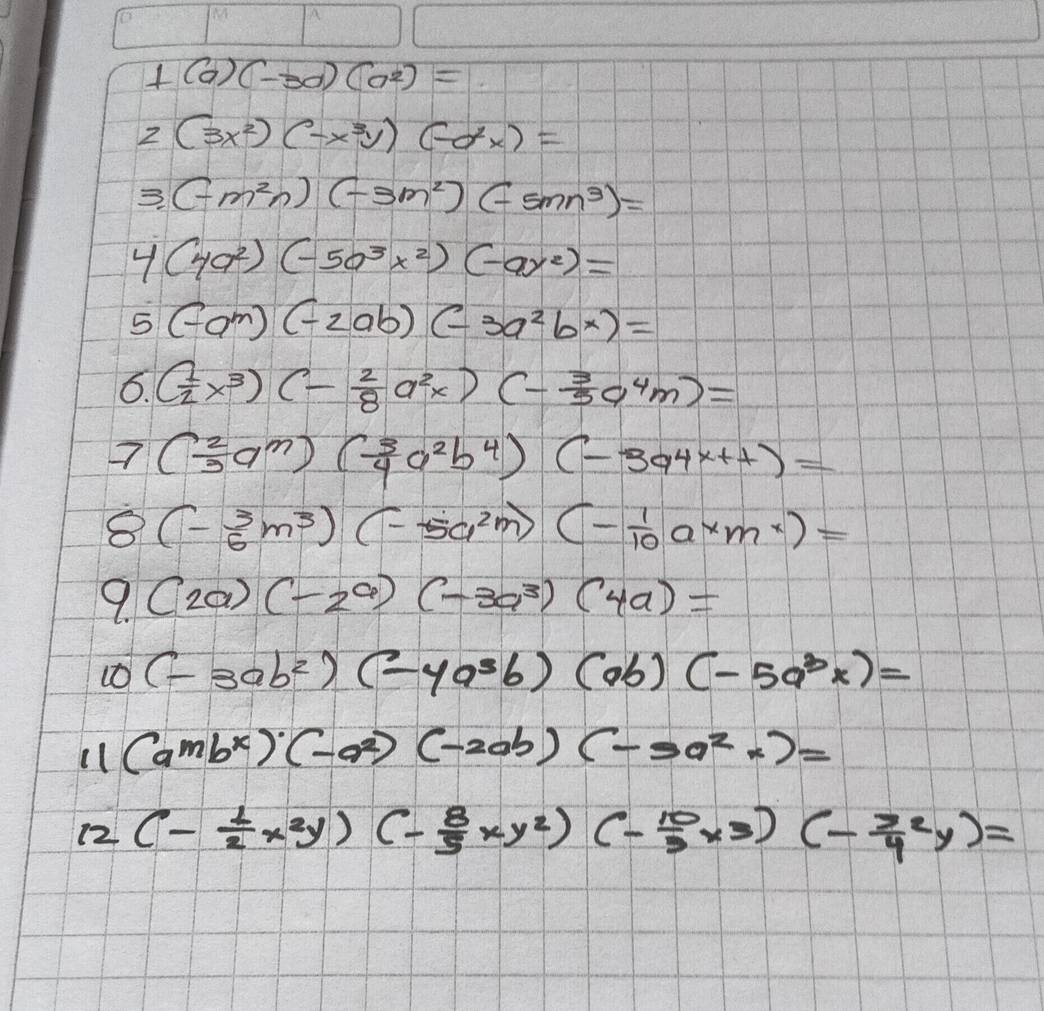 D M A
1 (a) (-3a) (a²) =
2 (3x²) (-x³y) (-a²x) =
3. (-m²n) (-3m²) (-5mn³) =
4 (4a²) (-5a³x²) (-ay²) =
5 (-aᵐ) (-2ab) (-3a²bˣ) =
6. (1/2 x³) (- 2/8 a²x) (- 3/5 a⁴m) =
7 (2/3 aᵐ) (3/4 a²b⁴) (-3a⁴ˣ⁺¹) =
8 (- 3/6 m³) (-5a²m) (- 1/10 aˣmˣ) =
9. (2a) (-2ᵃ) (-3a³) (4a) =
10 (-3ab²) (-4a³b) (ab) (-5a³x) =
11 (aᵐbˣ) (-a²) (-2ab) (-3a²x) =
12 (- 1/2 x²y) (- 8/5 xy²) (- 10/3 x3) (- 3/4 ²y) =